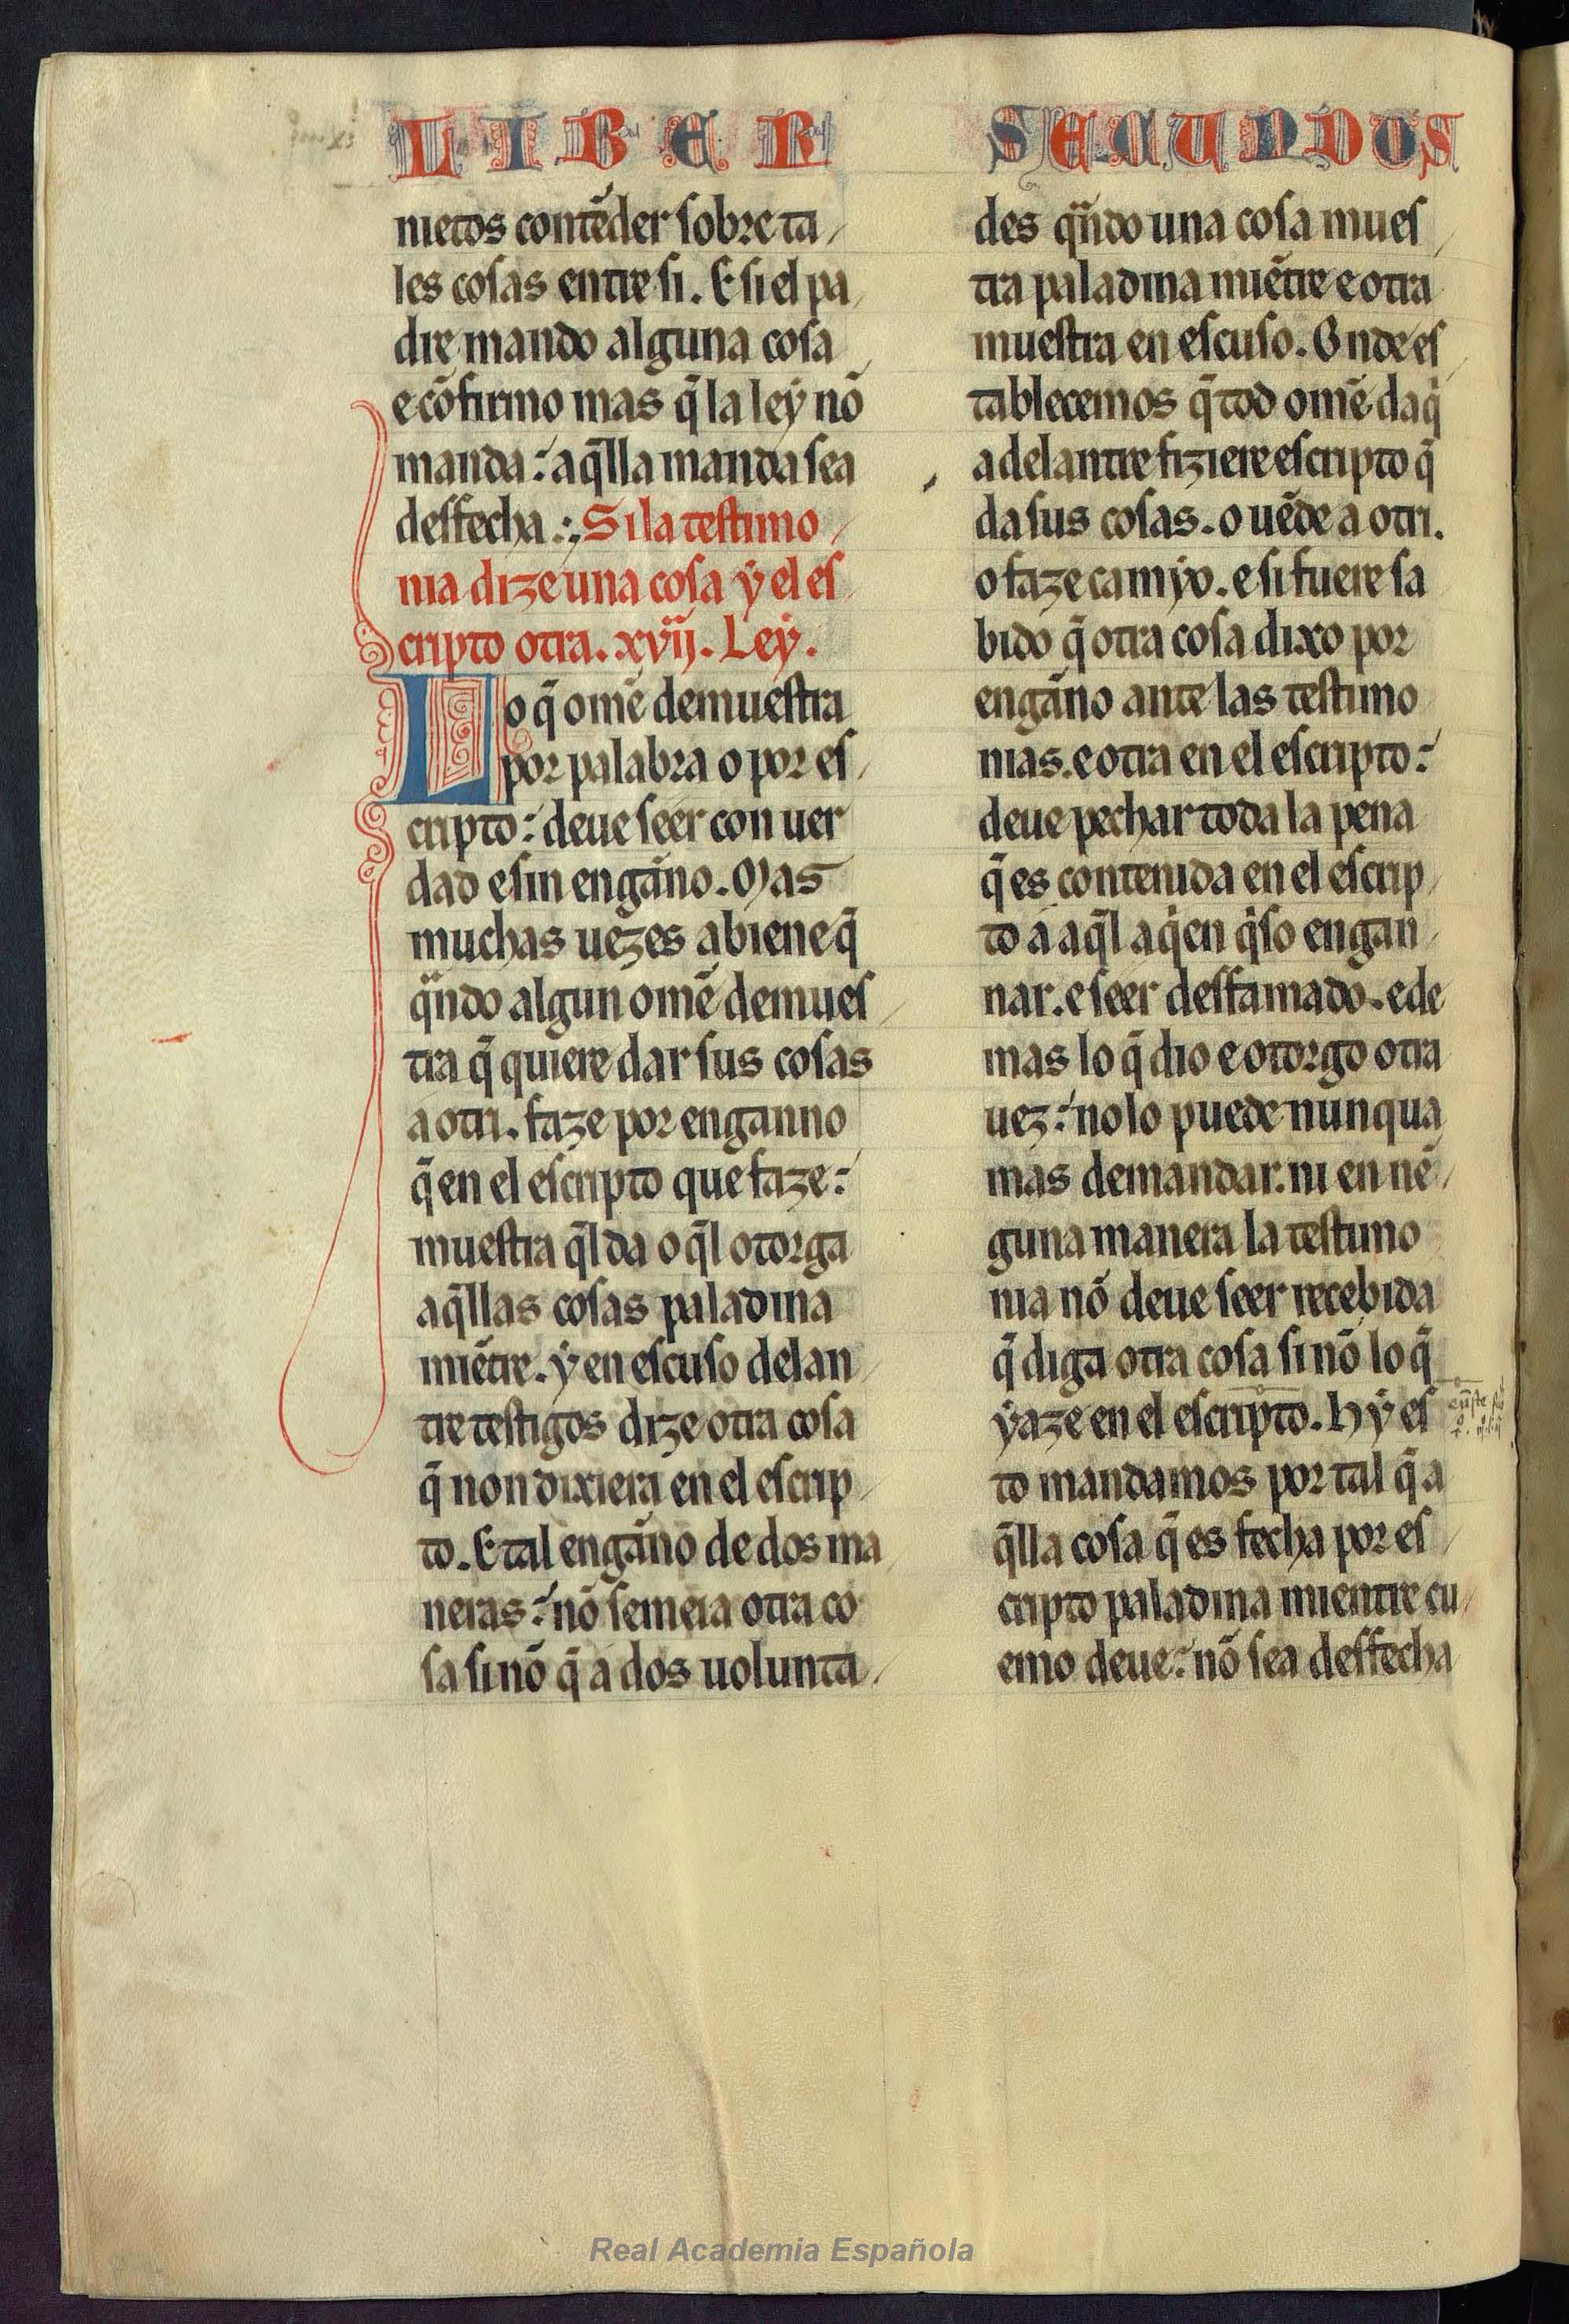 LIBER
SECUNDUS
nietos contẽder sobre ta
les cosas entre si. E si el pa
dre mando alguna cosa
e cõfirmo mas q̃ la ley nõ
manda: aq̃lla manda sea
desfecha. Si la testimo
nia dize una cosa y el es
cripto otra. xvij. Ley.
Lo q̃ omẽ demuestra
por palabra o por es
cripto: deue seer con uer
dad e sin engãno. Mas
muchas uezes abiene q̃
qũdo algun omẽ demues
tra q̃ quiere dar sus cosas
a otri. faze por enganno
q̃ en el escripto que faze:
muestra q̃l da o q̃l otorga
aq̃llas cosas paladina
miẽtre. y en escuso delan
tre testigos dize otra cosa
q̃ non dixiera en el escrip
to. E tal engãno de dos ma
neras: nõ semeia otra co
sa sinõ q̃ a dos uolunta
des qũdo una cosa mues
tra paladina miẽtre e otra
muestra en escuso. Onde es
tablecemos q̃ tod omẽ daq̃
adelantre fiziere escripto q̃
da sus cosas. o uẽde a otri.
o faze camyo. e si fuere sa
bido q̃ otra cosa dixo por
engãno ante las testimo
nias. e otra en el escripto:
deue pechar toda la pena
q̃ es contenida en el escrip
to a aq̃l a qien qiso engan
nar. e seer desfamado. e de
mas lo q̃ dio e otorgo otra
uez: no lo puede nunqua
mas demandar. ni en nẽ
guna manera la testimo
nia nõ deue seer recebida
q̃ diga otra cosa sinõ lo q̃
yaze en el escripto. Hy es
to mandamos por tal q̃ a
q̃lla cosa q̃ es fecha por es
cripto paladina mientre cu
emo deue: nõ sea desfecha
Real Academia Española